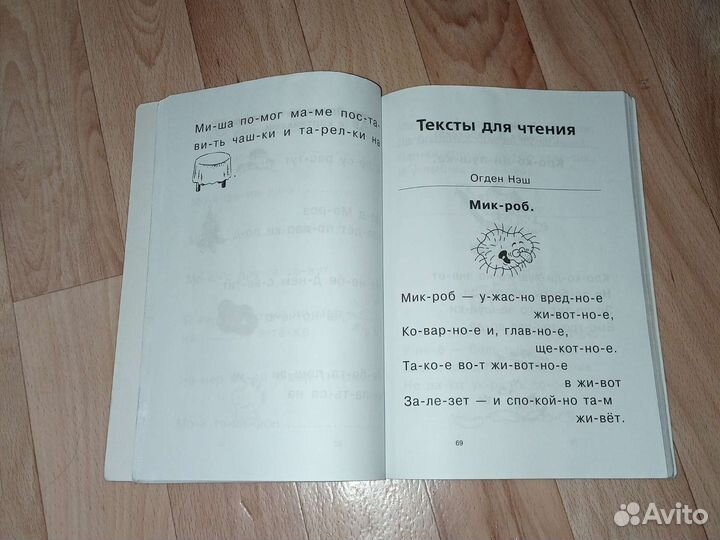 Ми-ша по-мог ма-ме пос-та-
ви-ть чаш-ки и та-рел-ки на
Тексты для чтения
Огден Нэш
Мик-роб.
Мик-роб — у-жас-но вред-но-е
жи-вот-но-е,
Ко-вар-но-е и, глав-но-е,
ще-кот-но-е.
Та-ко-е во-т жи-вот-но-е
в жи-вот
За-ле-зет — и спо-кой-но та-м
жи-вёт.
69
Avito